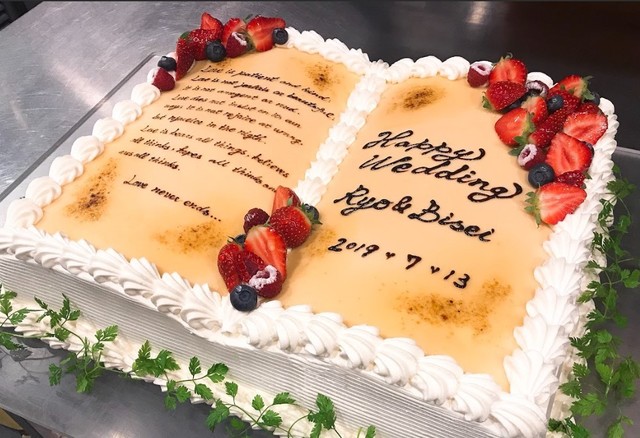 Love is patient and kind.
Love is not jealous or boastful,
it is not arrogant or rude.
Love does not insist on its
not rejoice in wrong,
but rejoices in the right.
Love is bears all things, believes
all things, hopes all things,
all things.
Love never ends...
Happy
Wedding
Ryo & Bisei
2019 ♥ 7 ♥ 13